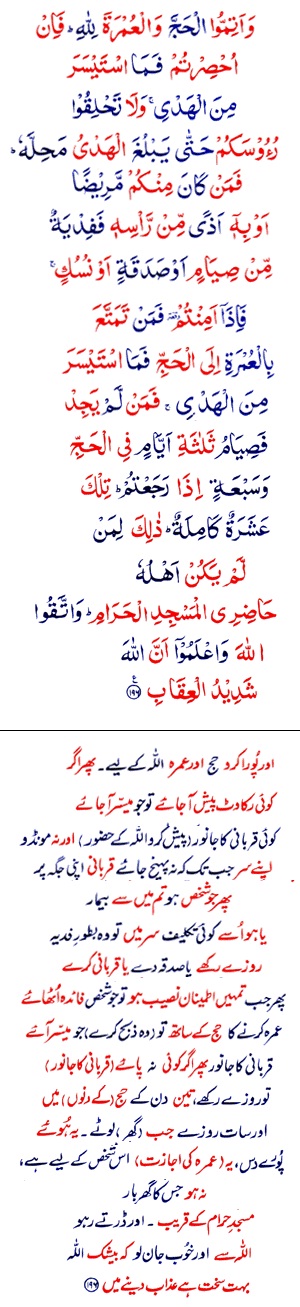 وَاَتِمُّوا الْحَجَّ وَالْعُمْرَةَ لِلّٰهِ ؕ فَاِنْ
اُحْصِرْتُمْ فَمَا اسْتَيْسَرَ
مِنَ الْهَدْىِ ۚ وَلَا تَحْلِقُوْا
رُءُوْسَكُمْ حَتّٰى يَبْلُغَ الْهَدْىُ مَحِلَّهٗ ؕ
فَمَنْ كَانَ مِنْكُمْ مَّرِيْضًا
اَوْ بِهٖۤ اَذًى مِّنْ رَّاْسِهٖ فَفِدْيَةٌ
مِّنْ صِيَامٍ اَوْ صَدَقَةٍ اَوْ نُسُكٍ ۚ
فَاِذَاۤ اَمِنْتُمْ ۥ فَمَنْ تَمَتَّعَ
بِالْعُمْرَةِ اِلَى الْحَجِّ فَمَا اسْتَيْسَرَ
مِنَ الْهَدْىِ ۚ فَمَنْ لَّمْ يَجِدْ
فَصِيَامُ ثَلٰثَةِ اَيَّامٍ فِى الْحَجِّ
وَسَبْعَةٍ اِذَا رَجَعْتُمْ ؕ تِلْكَ
عَشَرَةٌ كَامِلَةٌ ؕ ذٰلِكَ لِمَنْ
لَّمْ يَكُنْ اَهْلُهٗ
حَاضِرِى الْمَسْجِدِ الْحَرَامِ ؕ وَاتَّقُوا
اللّٰهَ وَاعْلَمُوْۤا اَنَّ اللّٰهَ
شَدِيْدُ الْعِقَابِ ﴿۱۹۶﴾
اور پُورا کرو حج اور عمرہ اللہ کے لیے۔ پھر اگر
کوئی رکاوٹ پیش آجائے تو جو میسّر آجائے
کوئی قربانی کا جانور (پیش کرو اللہ کے حضور) اور نہ مونڈو
اپنے سر جب تک کہ نہ پہنچ جائے قربانی اپنی جگہ پر
پھر جو شخص ہو تم میں سے بیمار
یا ہو اُسے کوئی تکلیف سر میں تو وہ بطورِ فدیہ
روزے رکھے یا صدقہ دے یا قربانی کرے
پھر جب تمہیں اطمینان نصیب ہو تو جو شخص فائدہ اُٹھائے
عمرہ کرنے کا حج کے ساتھ تو (وہ ذبح کرے) جو میسر آئے
قربانی کا جانور پھر اگر کوئی نہ پائے (قربانی کا جانور)
تو روزے رکھے، تین دن کے حج (کے دنوں) میں
اور سات روزے جب (گھر) لوٹے۔ یہ ہُوئے
پُورے دس، یہ (عمرہ کی اجازت) اس شخص کے لیے ہے،
نہ ہو جس کا گھر بار
مسجدِ حرام کے قریب۔ اور ڈرتے رہو
اللہ سے اور خُوب جان لو کہ بیشک اللہ
بہت سخت ہے عذاب دینے میں ﴿۱۹۶﴾